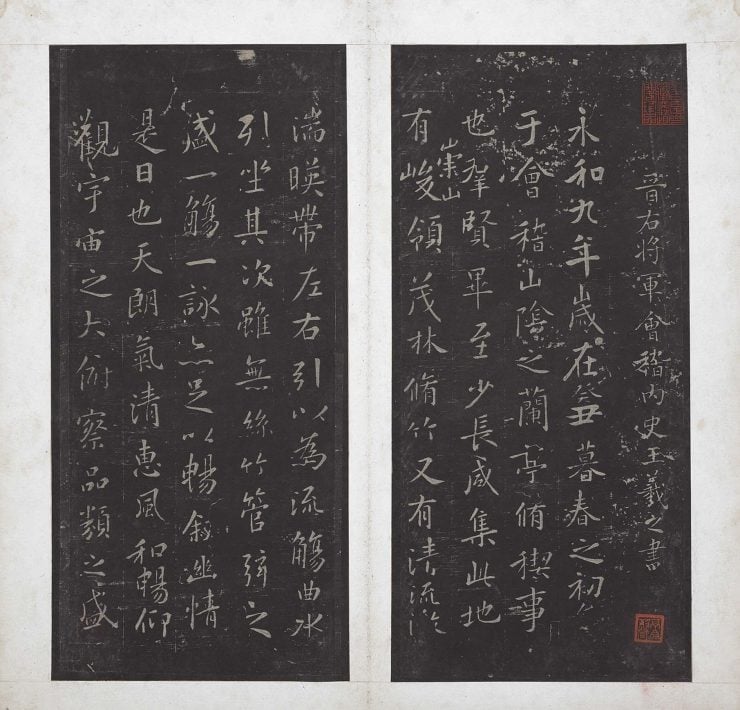 晋右将軍會稽内史王羲之書
永和九年歲在癸丑暮春之初會
于會稽山陰之蘭亭脩稧事
也羣賢畢至少長咸集此地
有崇山峻領茂林脩竹又有清流激
湍暎帶左右引以為流觴曲水
列坐其次雖無絲竹管弦之
盛一觴一詠亦足以暢叙幽情
是日也天朗氣清惠風和暢仰
觀宇宙之大俯察品類之盛